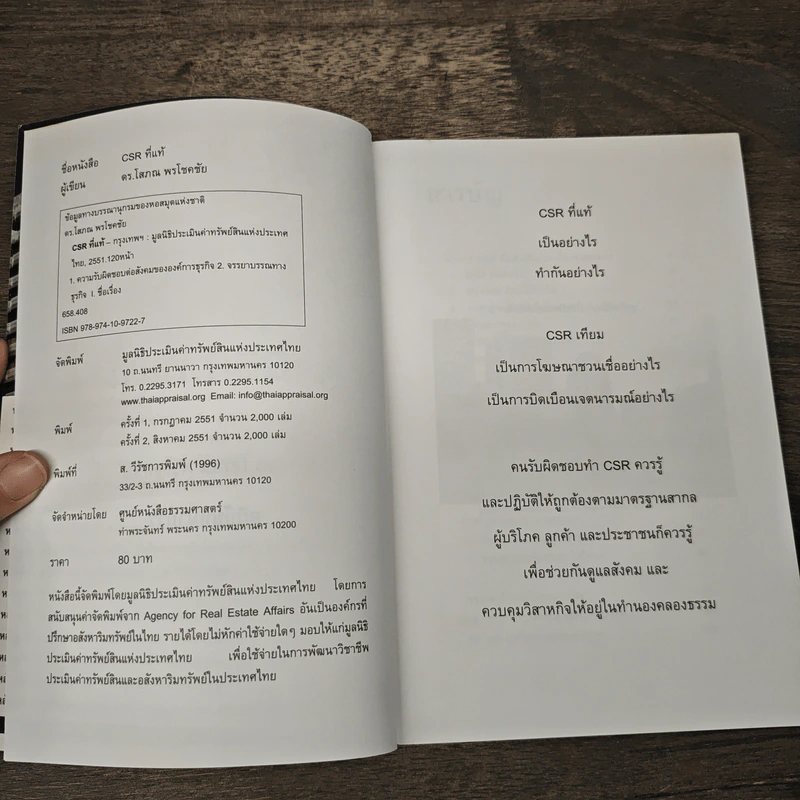 ชื่อหนังสือ CSR ที่แท้
ผู้เขียน ดร.โสภณ พรโชคชัย
ข้อมูลทางบรรณานุกรมของหอสมุดแห่งชาติ
ดร.โสภณ พรโชคชัย
CSR ที่แท้ – กรุงเทพฯ : มูลนิธิประเมินค่าทรัพย์สินแห่งประเทศ
ไทย, 2551.120หน้า
1. ความรับผิดชอบต่อสังคมขององค์การธุรกิจ 2. จรรยาบรรณทาง
ธุรกิจ I. ชื่อเรื่อง
658.408
ISBN 978-974-10-9722-7
จัดพิมพ์ มูลนิธิประเมินค่าทรัพย์สินแห่งประเทศไทย
10 ถ.นนทรี ยานนาวา กรุงเทพมหานคร 10120
โทร. 0.2295.3171 โทรสาร 0.2295.1154
www.thaiappraisal.org Email: info@thaiappraisal.org
พิมพ์ ครั้งที่ 1, กรกฎาคม 2551 จำนวน 2,000 เล่ม
ครั้งที่ 2, สิงหาคม 2551 จำนวน 2,000 เล่ม
พิมพ์ที่ ส. วีรัชการพิมพ์ (1996)
33/2-3 ถ.นนทรี กรุงเทพมหานคร 10120
จัดจำหน่ายโดย ศูนย์หนังสือธรรมศาสตร์
ท่าพระจันทร์ พระนคร กรุงเทพมหานคร 10200
ราคา 80 บาท
หนังสือนี้จัดพิมพ์โดยมูลนิธิประเมินค่าทรัพย์สินแห่งประเทศไทย โดยการ
สนับสนุนค่าจัดพิมพ์จาก Agency for Real Estate Affairs อันเป็นองค์กรที่
ปรึกษาอสังหาริมทรัพย์ในไทย รายได้โดยไม่หักค่าใช้จ่ายใดๆ มอบให้แก่มูลนิธิ
ประเมินค่าทรัพย์สินแห่งประเทศไทย เพื่อใช้จ่ายในการพัฒนาวิชาชีพ
ประเมินค่าทรัพย์สินและอสังหาริมทรัพย์ในประเทศไทย
CSR ที่แท้
เป็นอย่างไร
ทำกันอย่างไร
CSR เทียม
เป็นการโฆษณาชวนเชื่ออย่างไร
เป็นการบิดเบือนเจตนารมณ์อย่างไร
คนรับผิดชอบทำ CSR ควรรู้
และปฏิบัติให้ถูกต้องตามมาตรฐานสากล
ผู้บริโภค ลูกค้า และประชาชนก็ควรรู้
เพื่อช่วยกันดูแลสังคม และ
ควบคุมวิสาหกิจให้อยู่ในทำนองคลองธรรม